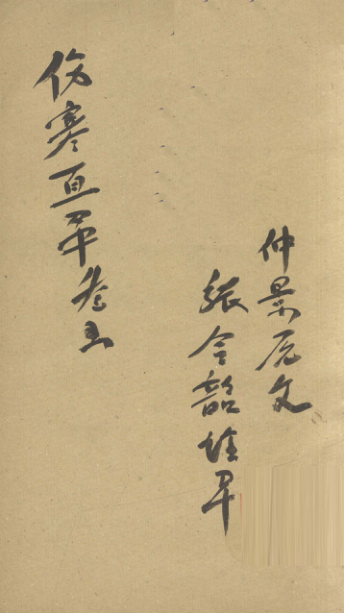 仲景原文
张令韶註解
伤寒直解卷五